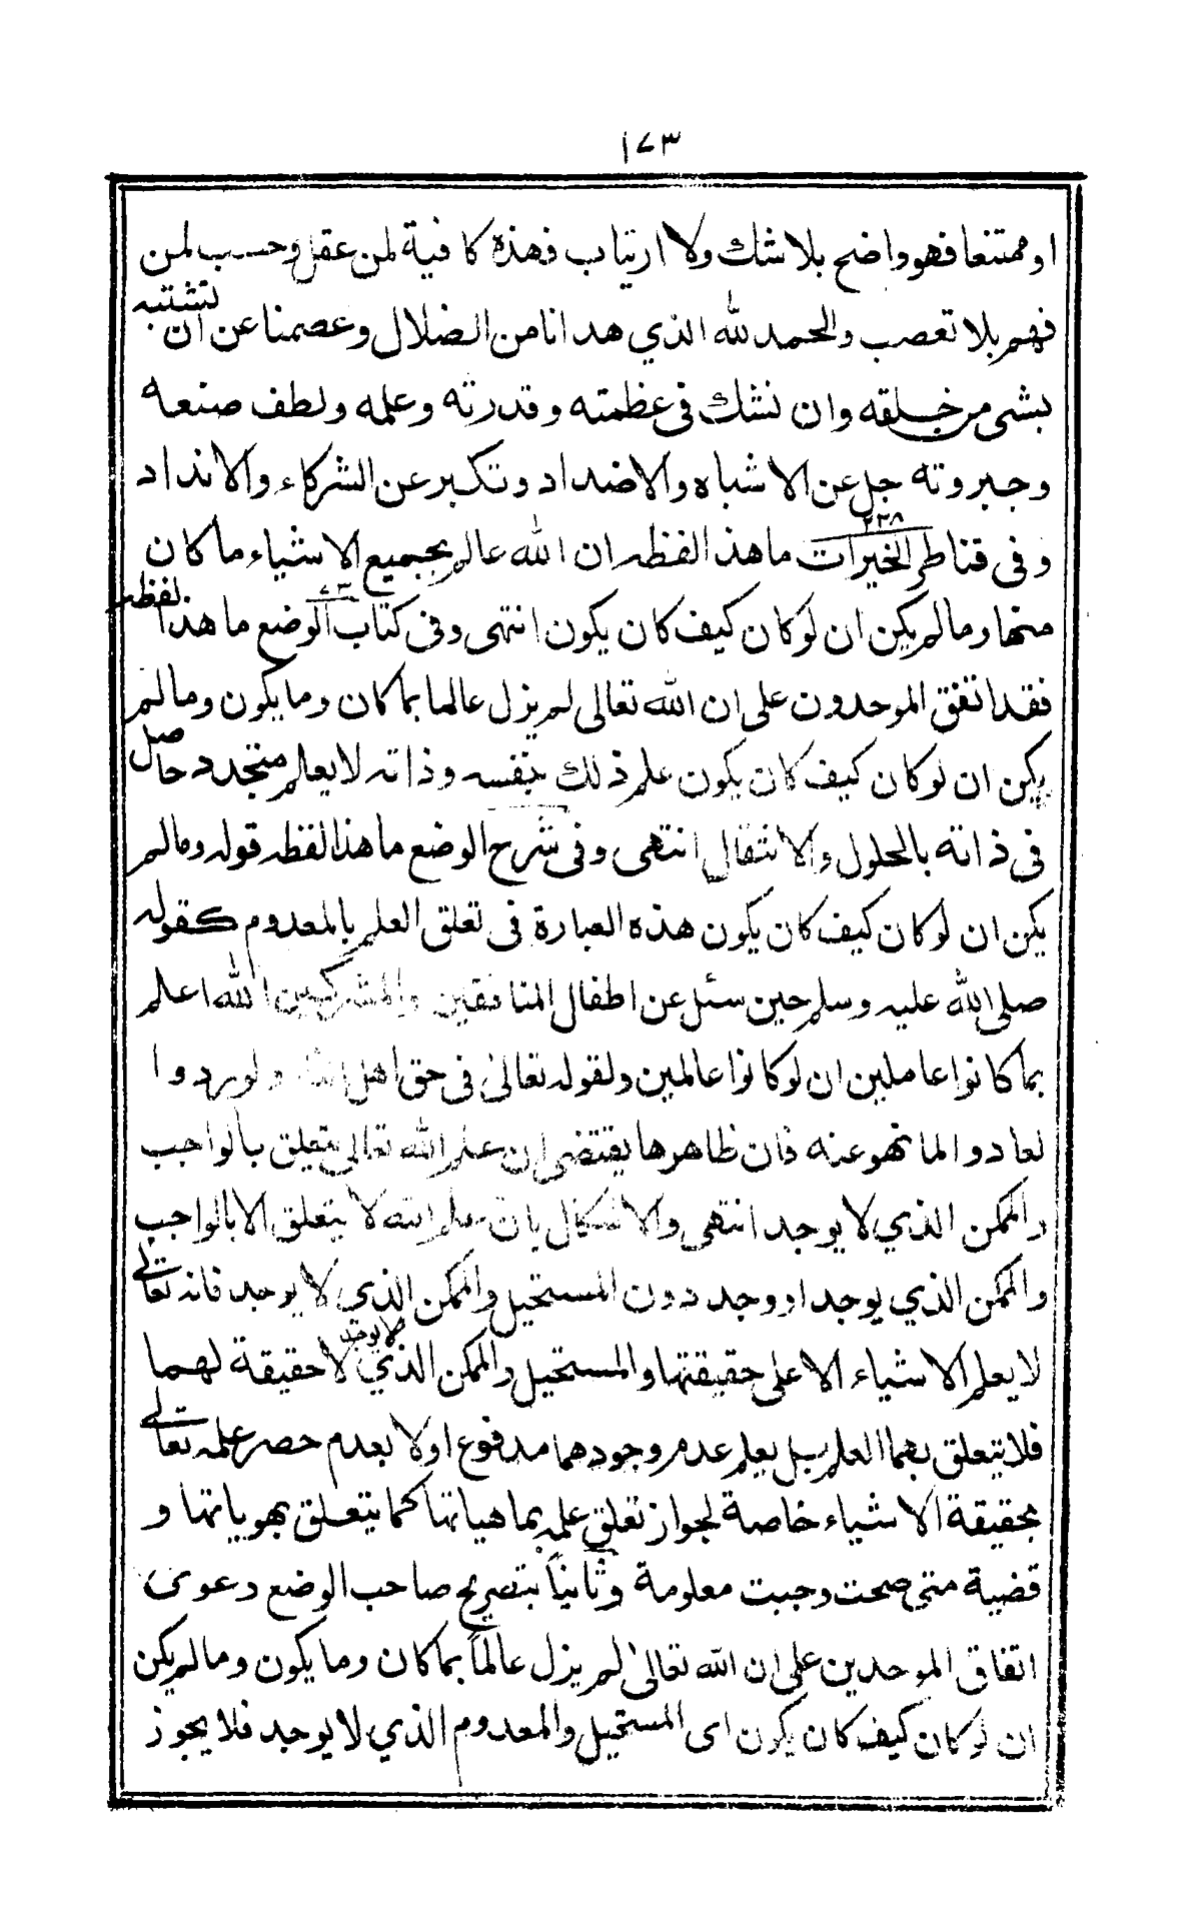 ١٧٣
او ممتنعا فهو واضح بلا شك ولا ارتياب فهذه كافية لمن عقل وحسب لمن
فهم بلا تعصب والحمد لله الذي هدانا من الضلال وعصمنا عن ان نشتبه
بشى من خلقه وان نشك فى عظمته وقدرته وعلمه ولطف صنعه
وجبروته جل عن الاشباه والاضداد وتكبر عن الشركاء والانداد
وفى قناطر الخيرات ٢٣٨ ما هذا لفظه ان الله عالم بجميع الاشياء ما كان
منها وما لم يكن ان لو كان كيف كان يكون انتهى وفى كتاب الوضع ما هذا لفظه
فقد اتفق الموحدون على ان الله تعالى لم يزل عالما بما كان وما يكون وما لم
يكن ان لو كان كيف كان يكون علم ذلك بنفسه وذاته لا يعلم متجدد حاصل
فى ذاته بالحلول والانتقال انتهى وفى شرح الوضع ما هذا لفظه قوله وما لم
يكن ان لو كان كيف كان يكون هذه العبارة فى تعلق العلم بالمعدوم كقوله
صلى الله عليه وسلم حين سئل عن اطفال المنافقين والمشركين الله اعلم
بما كانوا عاملين ان لو كانوا عالمين ولقوله تعالى فى حق اهل ولو ردوا
لعادوا لما نهوا عنه فان ظاهرها يقتضى ان علم الله تعالى يتعلق بالواجب
والممكن الذي لا يوجد انتهى والاشكال بان علم الله لا يتعلق الا بالواجب
والممكن الذي يوجد او وجد دون المستحيل والممكن الذي لا يوجد فانه تعالى
لا يعلم الاشياء الا على حقيقتها والمستحيل والممكن الذي لا يوجد لا حقيقة لهما
فلا يتعلق بهما العلم بل يعلم عدم وجودهما مدفوع اولا بعدم حصر علمه تعالى
بحقيقة الاشياء خاصة لجواز تعلق علمه بماهياتها كما يتعلق بهوياتها و
قضية متى صحت وجبت معلومة وثانياً بتصريح صاحب الوضع دعوى
اتفاق الموحدين على ان الله تعالى لم يزل عالماً بما كان وما يكون وما لم يكن
ان لو كان كيف كان يكون اى المستحيل والمعدوم الذي لا يوجد فلا يجوز